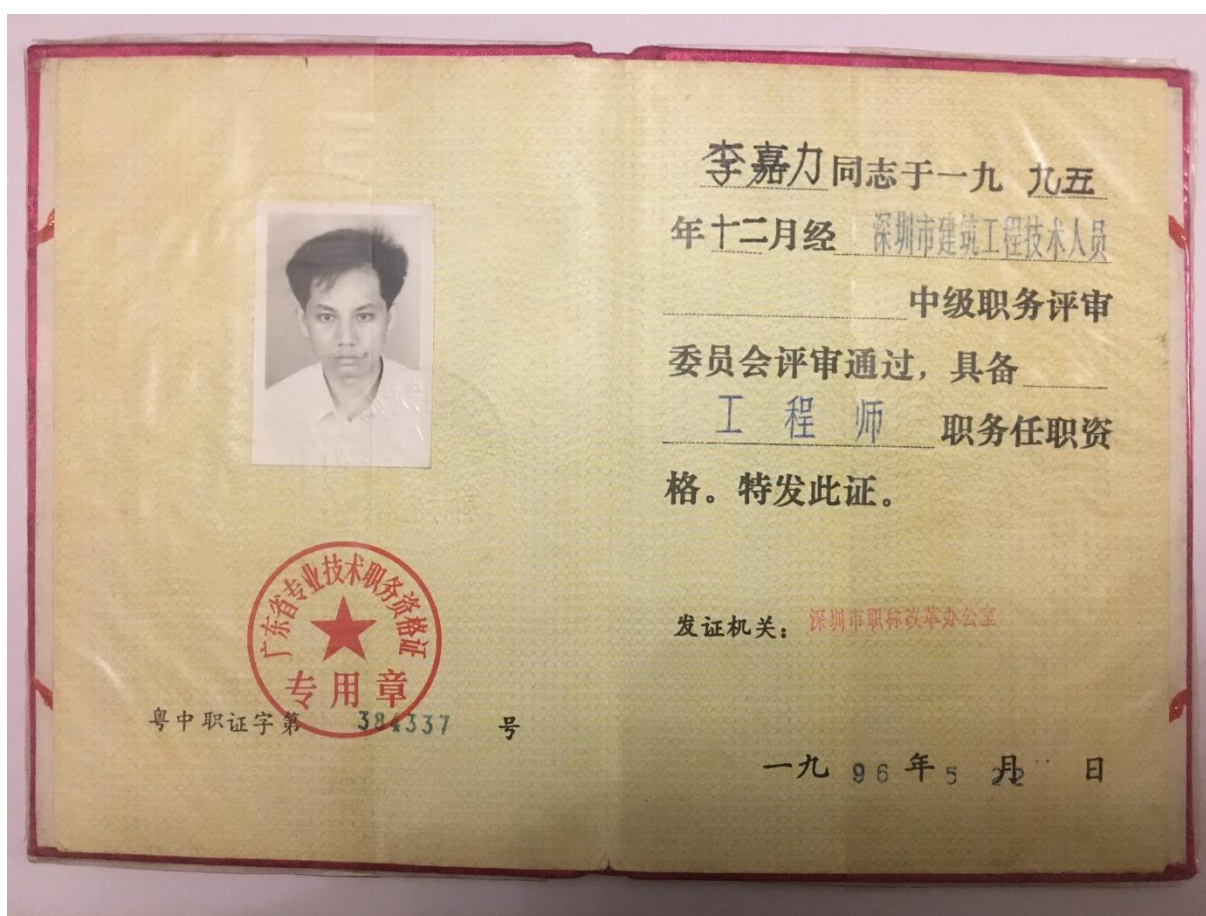 广东省专业技术职务资格证
专用章
粤中职证字第 384337 号
李嘉力同志于一九 九五
年十二月经 深圳市建筑工程技术人员
中级职务评审
委员会评审通过，具备
工程师 职务任职资
格。特发此证。
发证机关：深圳市职称改革办公室
一九 96 年 5 月 22 日